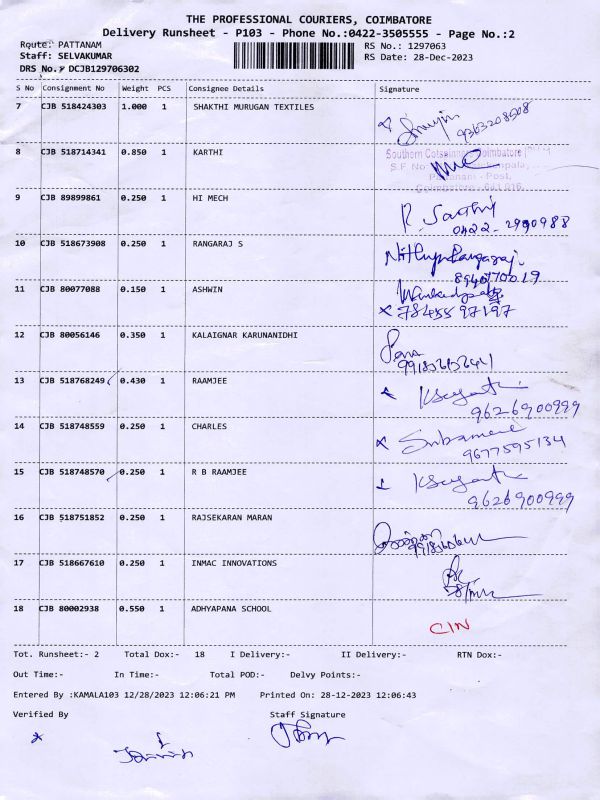 THE PROFESSIONAL COURIERS, COIMBATORE
Delivery Runsheet - P103 - Phone No.:0422-3505555 - Page No.:2
Route: PATTANAM RS No.: 1297063
Staff: SELVAKUMAR RS Date: 28-Dec-2023
DRS No.: DCJB129706302
S No Consignment No Weight PCS Consignee Details Signature
7 CJB 518424303 1.000 1 SHAKTHI MURUGAN TEXTILES
9363208508
8 CJB 518714341 0.850 1 KARTHI
Southern Coimbatore
S.F No
Pattanam - Post,
Coimbatore - 641 016.
9 CJB 89899861 0.250 1 HI MECH R. Sakthi
0422-2990988
10 CJB 518673908 0.250 1 RANGARAJ S
8940770019
11 CJB 80077088 0.150 1 ASHWIN
x 7845597197
12 CJB 80056146 0.350 1 KALAIGNAR KARUNANIDHI
13 CJB 518768249 0.430 1 RAAMJEE
9626900999
14 CJB 518748559 0.250 1 CHARLES
9677595134
15 CJB 518748570 0.250 1 R B RAAMJEE
9626900999
16 CJB 518751852 0.250 1 RAJSEKARAN MARAN
17 CJB 518667610 0.250 1 INMAC INNOVATIONS
18 CJB 80002938 0.550 1 ADHYAPANA SCHOOL
CIN
Tot. Runsheet:- 2 Total Dox:- 18 I Delivery:- II Delivery:- RTN Dox:-
Out Time:- In Time:- Total POD:- Delvy Points:-
Entered By :KAMALA103 12/28/2023 12:06:21 PM Printed On: 28-12-2023 12:06:43
Verified By Staff Signature